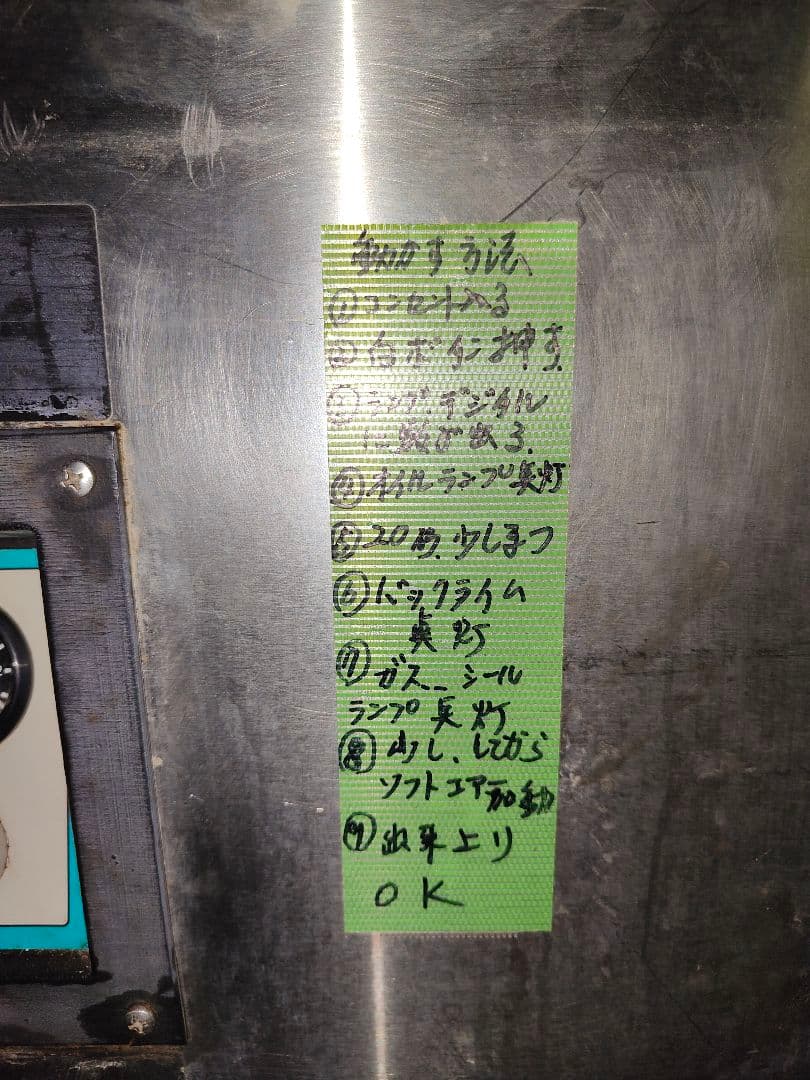 動かす方法
① コンセント入る
② 白ボタン押す
③ ランプ、デジタル
に数が出る、
④ オイルランプ点灯
⑤ 20秒、少しまつ
⑥ バックライム
点灯
⑦ ガス__シール
ランプ点灯
⑧ 少し、してから
ソフトエアー加動
⑨ 出来上り
OK